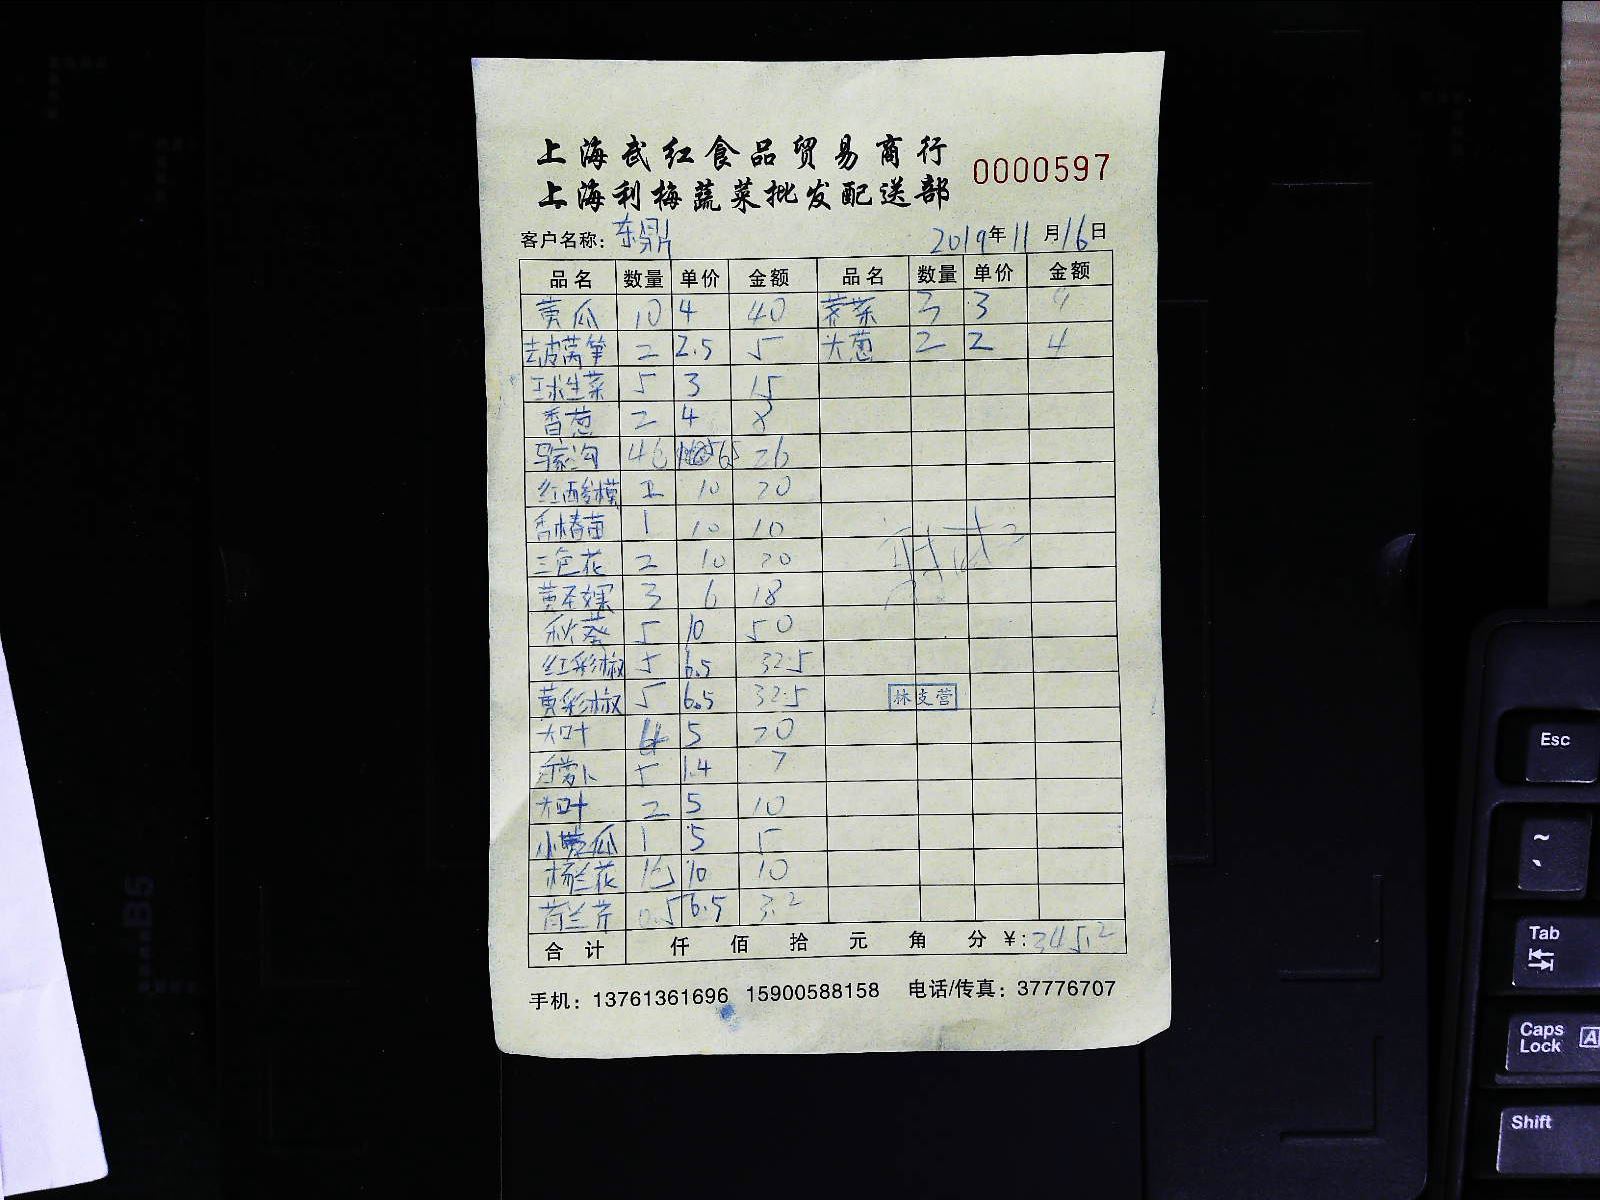 上海武红食品贸易商行
0000597
上海利梅蔬菜批发配送部
客户名称：东鼎 2019年11月16日
品名 数量 单价 金额 品名 数量 单价 金额
黄瓜 10 4 40 荠菜 3 3 9
去皮莴笋 2 2.5 5 大葱 2 2 4
球生菜 5 3 15
香葱 2 4 8
马家沟 4.6 5.65 26
红酸模 2 10 20
香椿苗 1 10 10
三色花 2 10 20
黄豆 3 6 18
秋葵 5 10 50
红彩椒 5 6.5 32.5
黄彩椒 5 6.5 32.5
大叶 4 5 20
萝卜 5 1.4 7
大叶 2 5 10
小黄瓜 1 5 5
杨兰花 10 10
荷兰芹 0.5 6.5 3.2
林支营
合计 仟 佰 拾 元 角 分 ¥：345.2
手机：13761361696 15900588158 电话/传真：37776707
B5
Esc
~
Tab
Caps Lock A
Shift